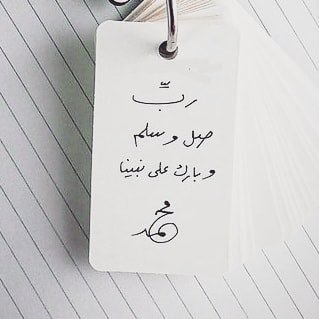 ربّ
صل وسلم
وبارك على نبينا
محمد